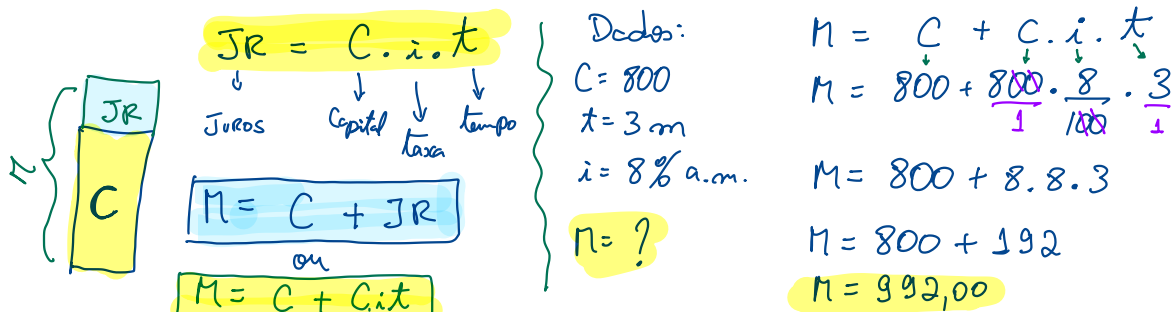 JR = C . i . t
JUROS Capital taxa tempo
JR
M
C
M = C + JR
ou
M = C + C.i.t
Dados:
C = 800
t = 3 m
i = 8% a.m.
M = ?
M = C + C . i . t
M = 800 + 800/1 . 8/100 . 3/1
M = 800 + 8.8.3
M = 800 + 192
M = 992,00